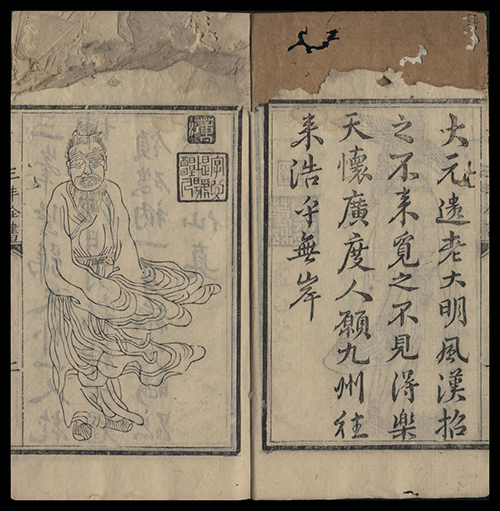 大元遺老大明風漢招
之不来覓之不見得樂
天懷廣度人願九州往
来浩乎無岸
三丰全書
二